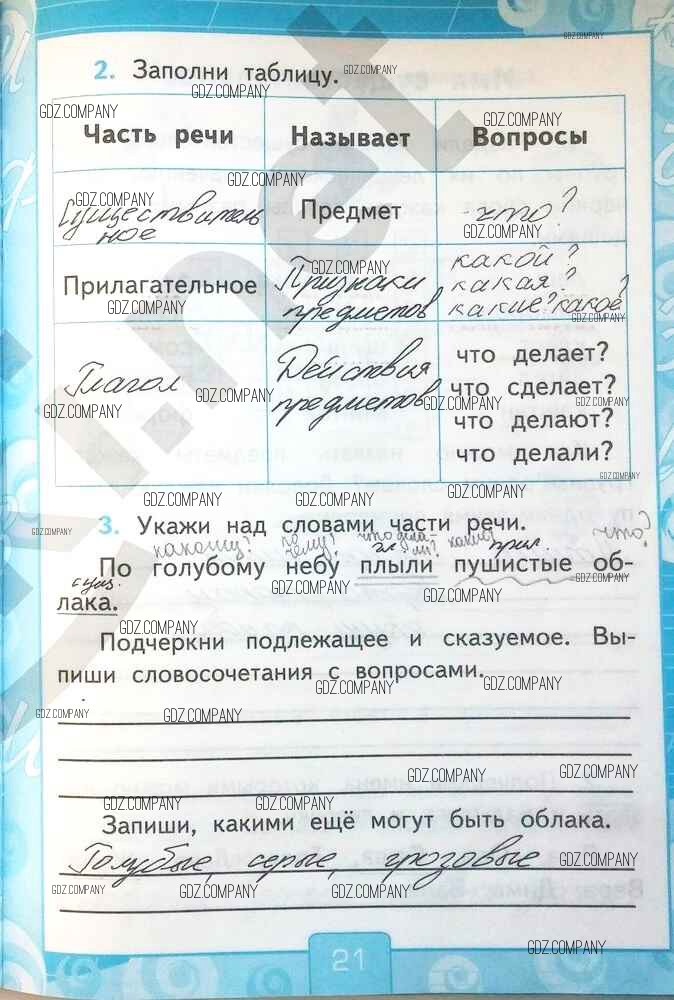 2. Заполни таблицу.
GDZ.COMPANY
Часть речи Называет Вопросы
Существитель
ное
Предмет
что?
Прилагательное
Признаки
предметов
какой?
какая?
какие? какое?
Глагол
Действия
предметов
что делает?
что сделает?
что делают?
что делали?
3. Укажи над словами части речи.
какому? по чему? что дела- ли? какие? что?
гл. прил.
По голубому небу плыли пушистые об-
сущ.
лака.
Подчеркни подлежащее и сказуемое. Вы-
пиши словосочетания с вопросами.
Запиши, какими ещё могут быть облака.
Голубые, серые, грозовые
21
GDZ.COMPANY